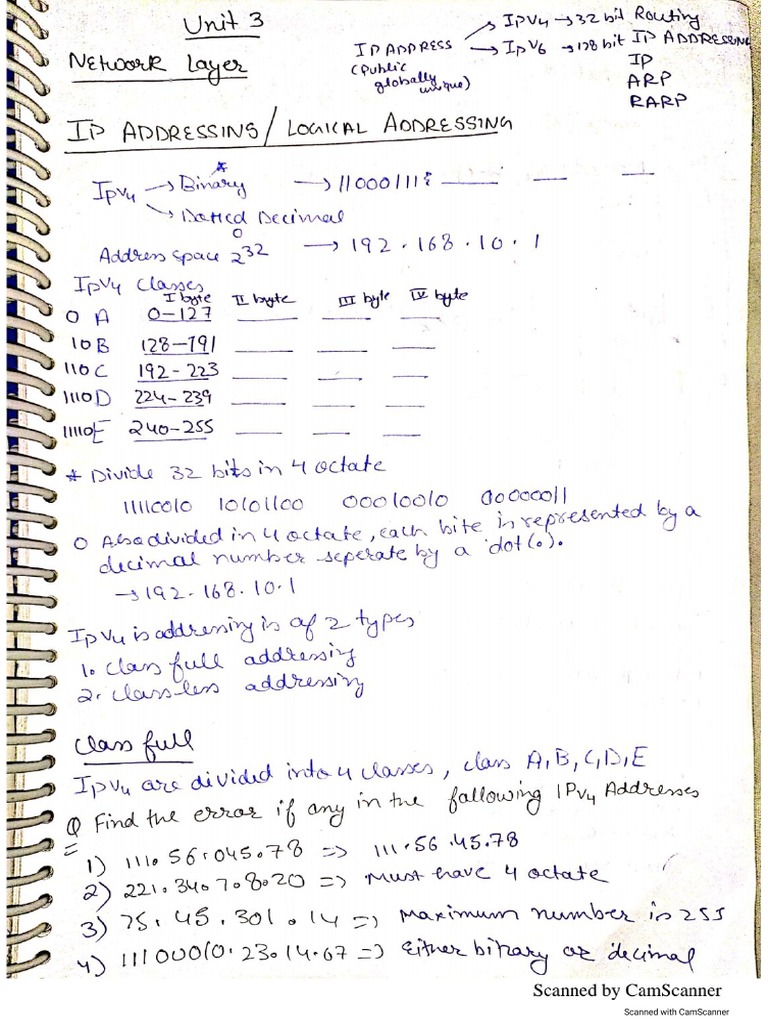 Unit 3
Network Layer
IP ADDRESS → IPv4 → 32 bit Routing
(Public globally unique) → IPv6 → 128 bit IP ADDRESSING
IP
ARP
RARP
IP ADDRESSING / LOGICAL ADDRESSING
*
IPv4 → Binary → 11000111
→ Dotted Decimal
O
Address space 2^32 → 192.168.10.1
IPv4 Classes
I byte II byte III byte IV byte
0 A 0-127
10 B 128-191
110 C 192-223
1110 D 224-239
11110 E 240-255
* Divide 32 bits in 4 octate
11110010 10101100 00010010 00000011
O Also divided in 4 octate, each bite is represented by a
decimal number seperate by a dot(.).
→ 192.168.10.1
IPv4 is addressing is of 2 types
1. Class full addressing
2. Class-less addressing
Class full
IPv4 are divided into 4 classes, class A,B,C,D,E
Q Find the error if any in the following IPv4 Addresses
1) 111.56.045.78 => 111.56.45.78
2) 221.34.7.8.20 => Must have 4 octate
3) 75.45.301.14 => Maximum number is 255
4) 11100010.23.14.67 => Either binary or decimal
Scanned by CamScanner
Scanned with CamScanner